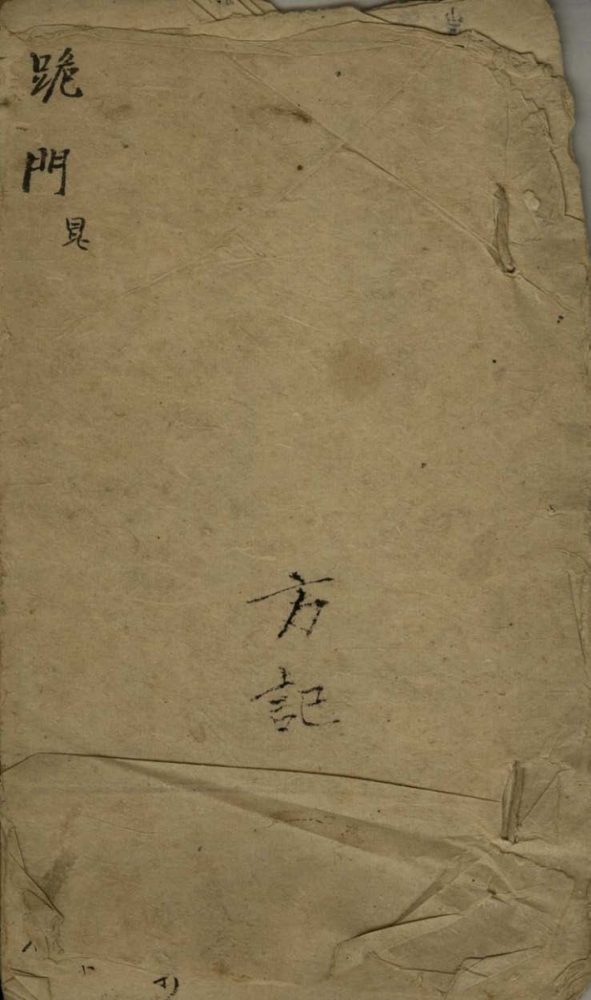 跪門
方記